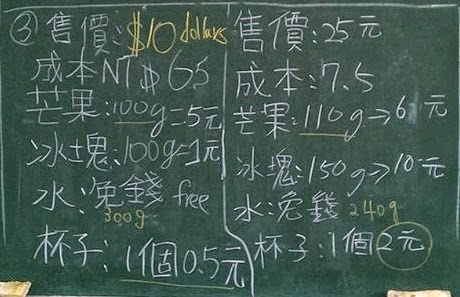 ③售價:$10 dollars
成本NT$6.5
芒果:100g=5元
冰塊:100g=1元
水:免錢 free
300g
杯子:1個0.5元
售價:25元
成本:7.5
芒果:110g→6元
冰塊:150g→10元
水:免錢 240g
杯子:1個2元